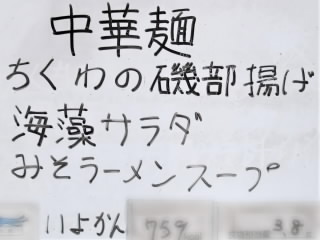 中華麺
ちくわの磯部揚げ
海藻サラダ
みそラーメンスープ
いよかん 759 3.8